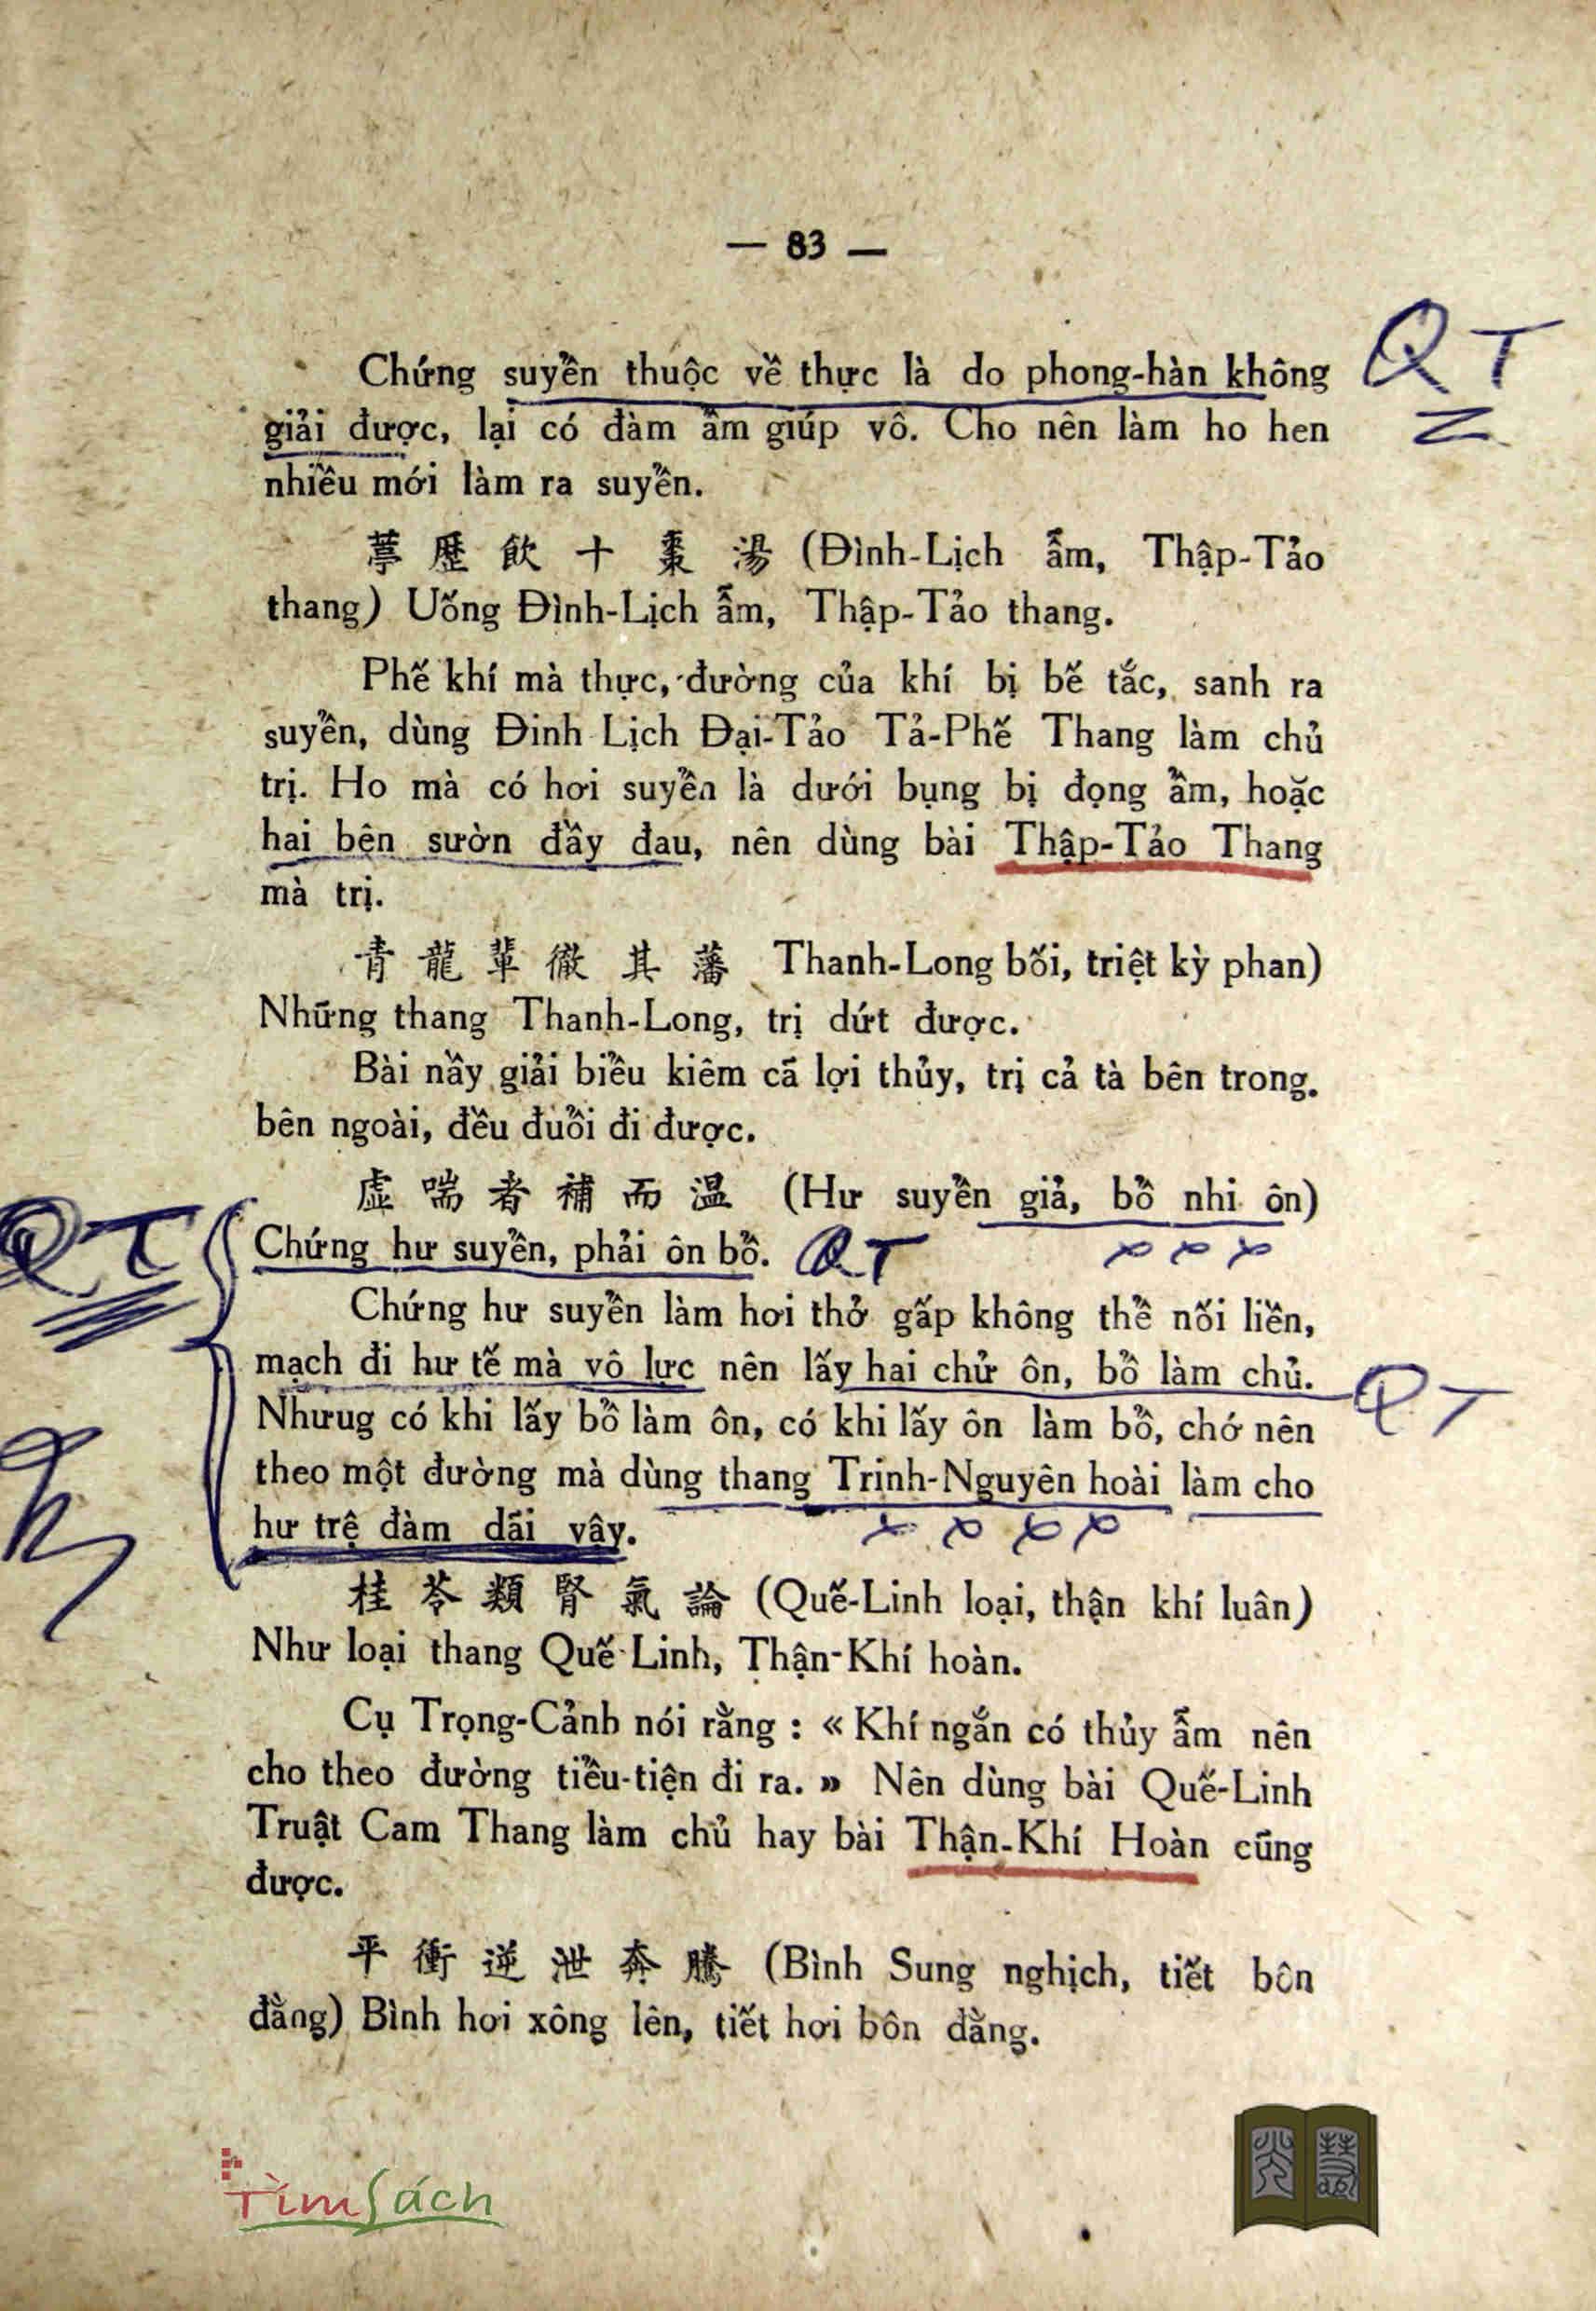 — 83 —
Chứng suyễn thuộc về thực là do phong-hàn không
QT
giải được, lại có đàm ẩm giúp vô. Cho nên làm ho hen
nhiều mới làm ra suyễn.
葶歷飲十棗湯 (Đình-Lịch ẩm, Thập-Tảo
thang) Uống Đình-Lịch ẩm, Thập-Tảo thang.
Phế khí mà thực, đường của khí bị bế tắc, sanh ra
suyễn, dùng Đinh Lịch Đại-Tảo Tả-Phế Thang làm chủ
trị. Ho mà có hơi suyễn là dưới bụng bị đọng ẩm, hoặc
hai bên sườn đầy đau, nên dùng bài Thập-Tảo Thang
mà trị.
青龍輩徹其藩 Thanh-Long bối, triệt kỳ phan)
Những thang Thanh-Long, trị dứt được.
Bài nầy giải biểu kiêm cã lợi thủy, trị cả tà bên trong.
bên ngoài, đều đuổi đi được.
虛喘者補而温 (Hư suyễn giả, bổ nhi ôn)
QT
Chứng hư suyễn, phải ôn bổ. QT
Chứng hư suyễn làm hơi thở gấp không thể nối liền,
mạch đi hư tế mà vô lực nên lấy hai chử ôn, bổ làm chủ.
QT
Nhưug có khi lấy bổ làm ôn, có khi lấy ôn làm bổ, chớ nên
theo một đường mà dùng thang Trinh-Nguyên hoài làm cho
hư trệ đàm dãi vây.
桂苓類腎氣論 (Quế-Linh loại, thận khí luân)
Như loại thang Quế Linh, Thận-Khí hoàn.
Cụ Trọng-Cảnh nói rằng : « Khí ngắn có thủy ẩm nên
cho theo đường tiểu-tiện đi ra. » Nên dùng bài Quế-Linh
Truật Cam Thang làm chủ hay bài Thận-Khí Hoàn cũng
được.
平衝逆泄奔騰 (Bình Sung nghịch, tiết bôn
đằng) Bình hơi xông lên, tiết hơi bôn đằng.
TìmSách